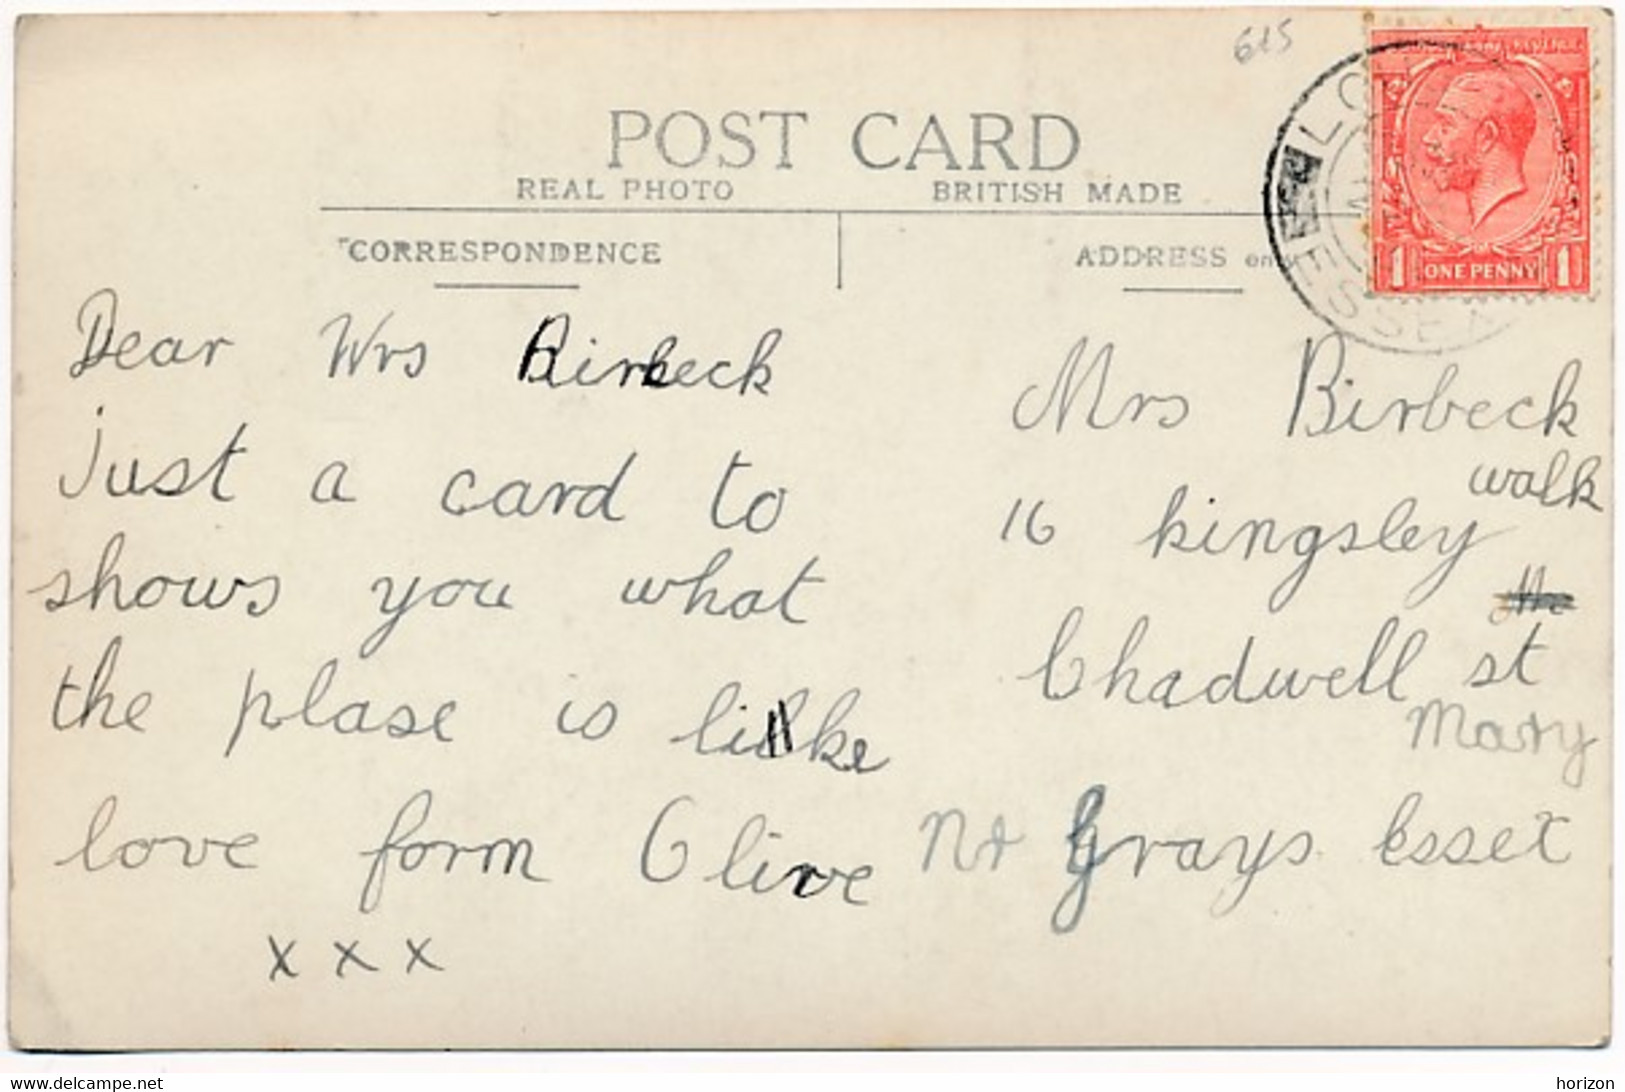 615
POST CARD
REAL PHOTO BRITISH MADE
CORRESPONDENCE
ADDRESS
REVENUE
1 ONE PENNY 1
ESSEX
Dear Wrs Birbeck
just a card to
shows you what
the plase is like
love form Olive
x x x
Mrs Birbeck
16 kingsley walk
Chadwell st
Mary
Nr Grays Essex
www.delcampe.net
horizon